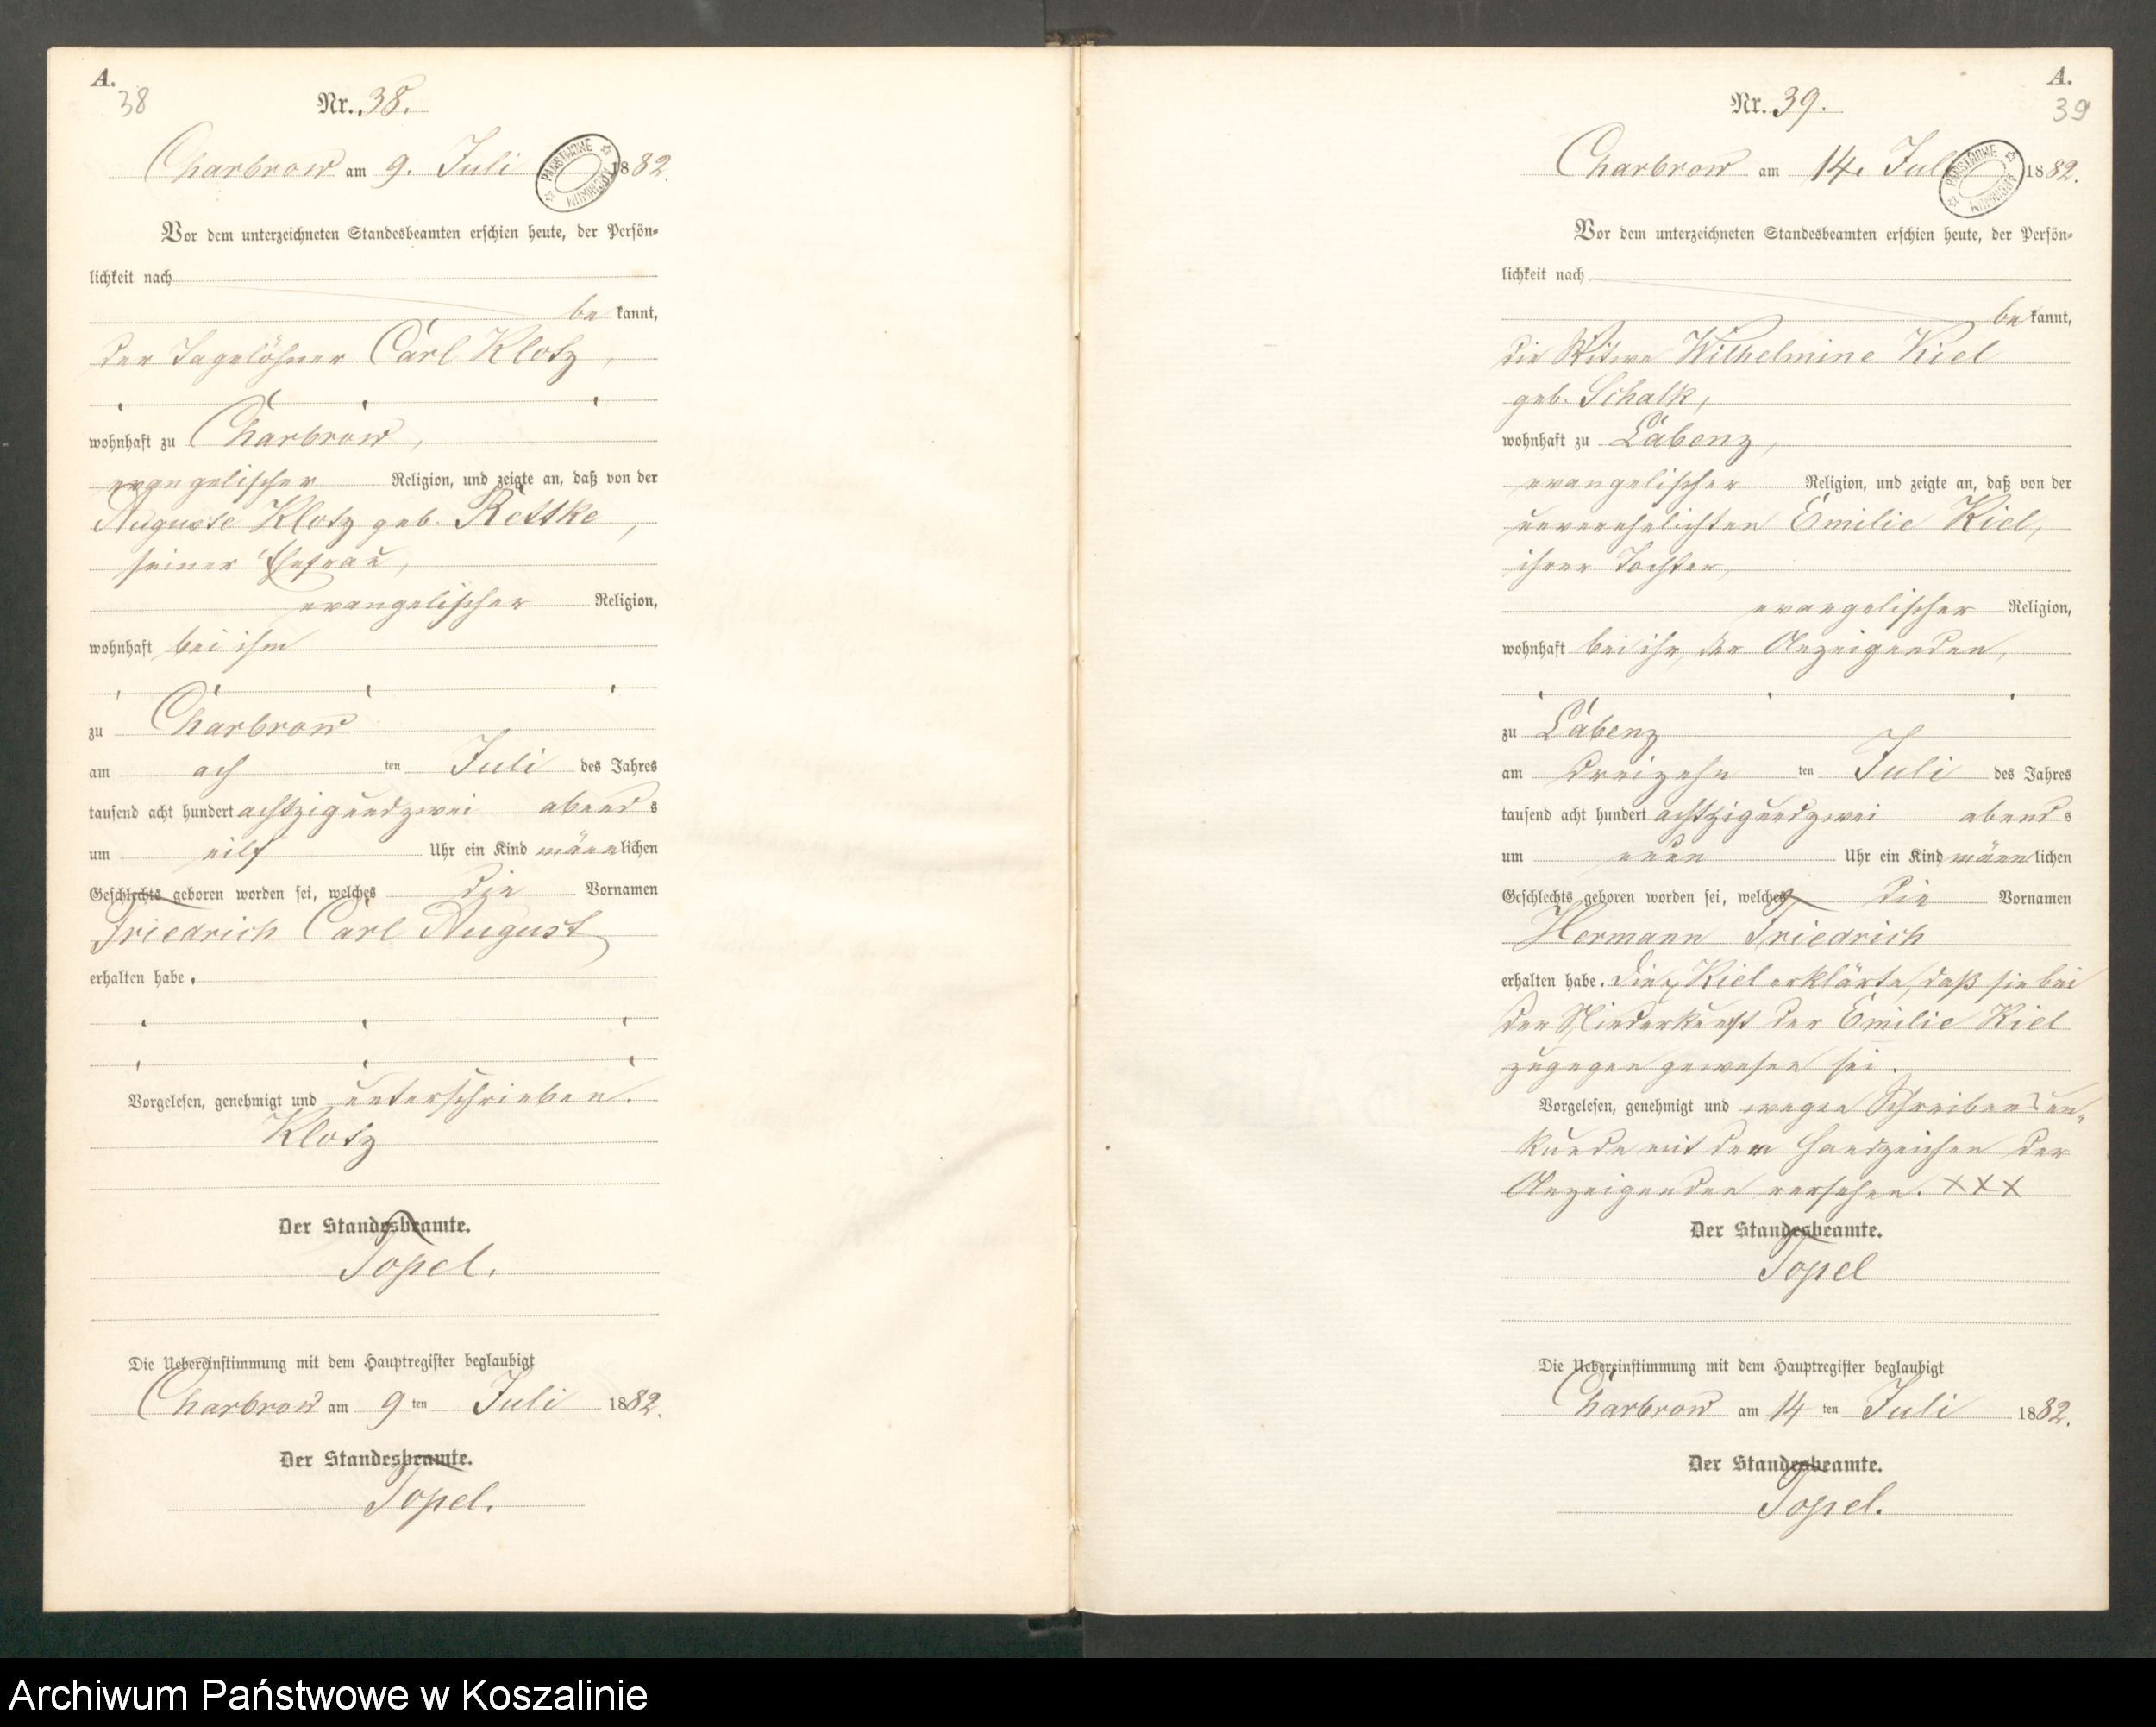 A.
38
Nr. 38.
Charbrow am 9. Juli 1882.
PAŃSTWOWE ARCHIWUM
Vor dem unterzeichneten Standesbeamten erschien heute, der Persön-
lichkeit nach
be kannt,
der Tagelöhner Carl Klotz,
wohnhaft zu Charbrow,
evangelischer Religion, und zeigte an, daß von der
Auguste Klotz geb. Rettke,
seiner Ehefrau,
evangelischer Religion,
wohnhaft bei ihm
zu Charbrow
am ach ten Juli des Jahres
tausend acht hundert achtzigundzwei abend s
um eilf Uhr ein Kind männlichen
Geschlechts geboren worden sei, welches die Vornamen
Friedrich Carl August
erhalten habe.
Vorgelesen, genehmigt und unterschrieben.
Klotz
Der Standesbeamte.
Topel.
Die Uebereinstimmung mit dem Hauptregister beglaubigt
Charbrow am 9 ten Juli 1882.
Der Standesbeamte.
Topel.
A.
39
Nr. 39.
Charbrow am 14. Juli 1882.
PAŃSTWOWE ARCHIWUM
Vor dem unterzeichneten Standesbeamten erschien heute, der Persön-
lichkeit nach
be kannt,
die Witwe Wilhelmine Kiel
geb. Schalk,
wohnhaft zu Labenz,
evangelischer Religion, und zeigte an, daß von der
unverehelichten Emilie Kiel,
ihrer Tochter,
evangelischer Religion,
wohnhaft bei ihr, der Anzeigenden,
zu Labenz
am dreizehn ten Juli des Jahres
tausend acht hundert achtzigundzwei abend s
um neun Uhr ein Kind männlichen
Geschlechts geboren worden sei, welches die Vornamen
Hermann Friedrich
erhalten habe. Die Kiel erklärte, daß sie bei
der Niederkunft der Emilie Kiel
zugegen gewesen sei.
Vorgelesen, genehmigt und wegen Schreibensun-
kunde mit dem Handzeichen der
Anzeigenden versehen. XXX
Der Standesbeamte.
Topel
Die Uebereinstimmung mit dem Hauptregister beglaubigt
Charbrow am 14 ten Juli 1882.
Der Standesbeamte.
Topel.
Archiwum Państwowe w Koszalinie